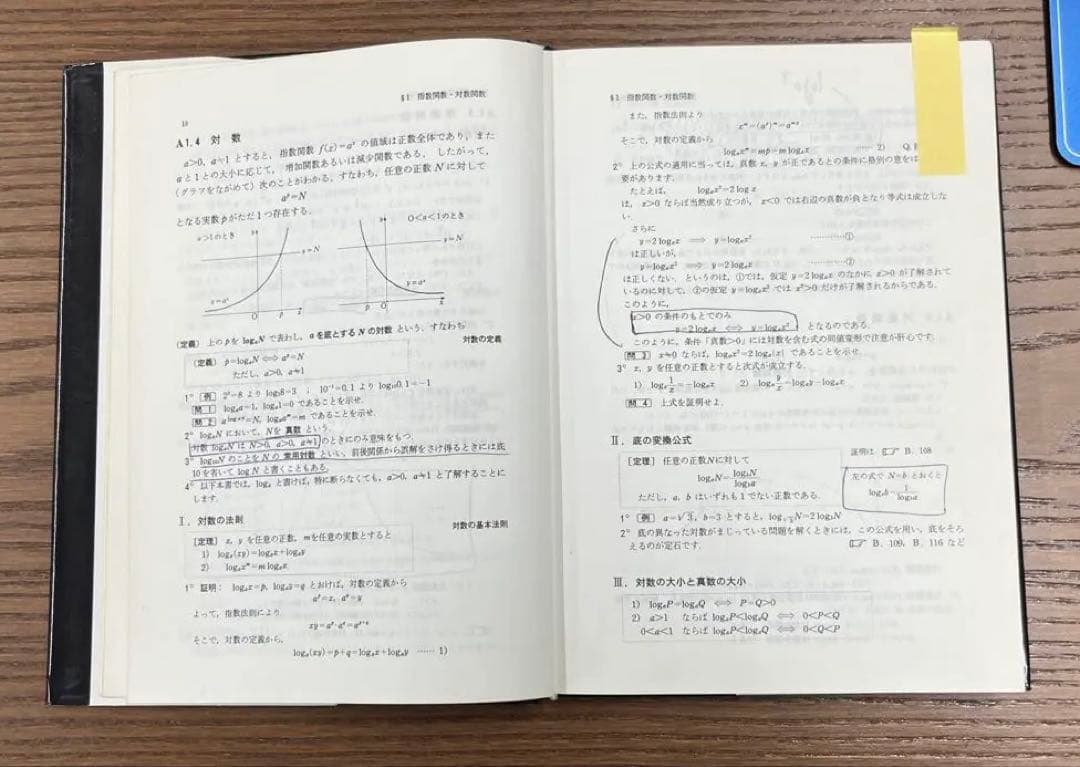 §1 指数関数・対数関数
18
A1.4 対 数
a>0, a≠1 とすると, 指数関数 f(x)=aˣ の値域は正数全体であり, また
aと1との大小に応じて, 増加関数あるいは減少関数である. したがって,
(グラフをながめて) 次のことがわかる. すなわち, 任意の正数 N に対して
aᵖ=N
となる実数 p がただ1つ存在する.
a>1のとき
0<a<1のとき
y=N
y=N
y=aˣ
y=aˣ
(定義) 上の p を logₐN で表わし, a を底とする N の対数 という. すなわち
対数の定義
(定義) p=logₐN ⟺ aᵖ=N
ただし, a>0, a≠1
1° [例] 2³=8 より log₂8=3 ; 10⁻¹=0.1 より log₁₀0.1=-1
[問1] logₐa=1, logₐ1=0 であることを示せ.
[問2] a^{logₐN}=N, logₐaᵐ=m であることを示せ.
2° logₐN において, Nを 真数 という.
対数 logₐN は N>0, a>0, a≠1 のときにのみ意味をもつ.
3° log₁₀N のことを N の 常用対数 といい, 前後関係から誤解をさけ得るときには底
10を省いて log N と書くこともある.
4° 以下本書では, logₐ と書けば, 特に断らなくても, a>0, a≠1 と了解することに
します.
Ⅰ. 対数の法則
対数の基本法則
[定理] x, y を任意の正数, mを任意の実数とすると
1) logₐ(xy)=logₐx+logₐy
2) logₐxᵐ=m logₐx
1° 証明: logₐx=p, logₐy=q とおけば, 対数の定義から
aᵖ=x, a^q=y
よって, 指数法則により
xy=aᵖ·a^q=a^{p+q}
そこで, 対数の定義から,
logₐ(xy)=p+q=logₐx+logₐy …… 1)
§1 指数関数・対数関数
また, 指数法則より
xᵐ=(aᵖ)ᵐ=a^{mp}
そこで, 対数の定義から
logₐxᵐ=mp=m logₐx …… 2)
2° 上の公式の適用に当っては, 真数 x, y が正であるとの条件に格別の意を
要があります.
たとえば, logₐx²=2 log x
は, x>0 ならば当然成り立つが, x<0 では右辺の真数が負となり等式は成立しな
い.
さらに
y=2 logₐx ⟹ y=logₐx² …………①
は正しいが,
y=logₐx² ⟹ y=2 logₐx …………②
は正しくない. というのは, ①では, 仮定 y=2 logₐx のなかに x>0 が了解されて
いるのに対して, ②の仮定 y=logₐx² では x²>0 だけが了解されるからである.
このように,
x>0 の条件のもとでのみ
y=2 logₐx ⟺ y=logₐx² となるのである.
このように, 条件「真数>0」には対数を含む式の同値変形で注意が肝心です.
[問3] x≠0 ならば, logₐx²=2 logₐ|x| であることを示せ.
3° x, y を任意の正数とすると次式が成立する.
1) logₐ1/x=-logₐx 2) logₐy/x=logₐy-logₐx
[問4] 上式を証明せよ.
Ⅱ. 底の変換公式
証明は ☞ B. 108
[定理] 任意の正数Nに対して
logₐN=log_bN/log_ba
ただし, a, b はいずれも1でない正数である.
左の式で N=b とおくと
logₐb=1/log_ba
1° [例] a=√3, b=3 とすると, log_{√3}N=2 log₃N
2° 底の異なった対数がまじっている問題を解くときには, この公式を用い, 底をそろ
えるのが定石です.
☞ B. 109, B. 116 など
Ⅲ. 対数の大小と真数の大小
1) logₐP=logₐQ ⟺ P=Q>0
2) a>1 ならば logₐP<logₐQ ⟺ 0<P<Q
0<a<1 ならば logₐP<logₐQ ⟺ 0<Q<P